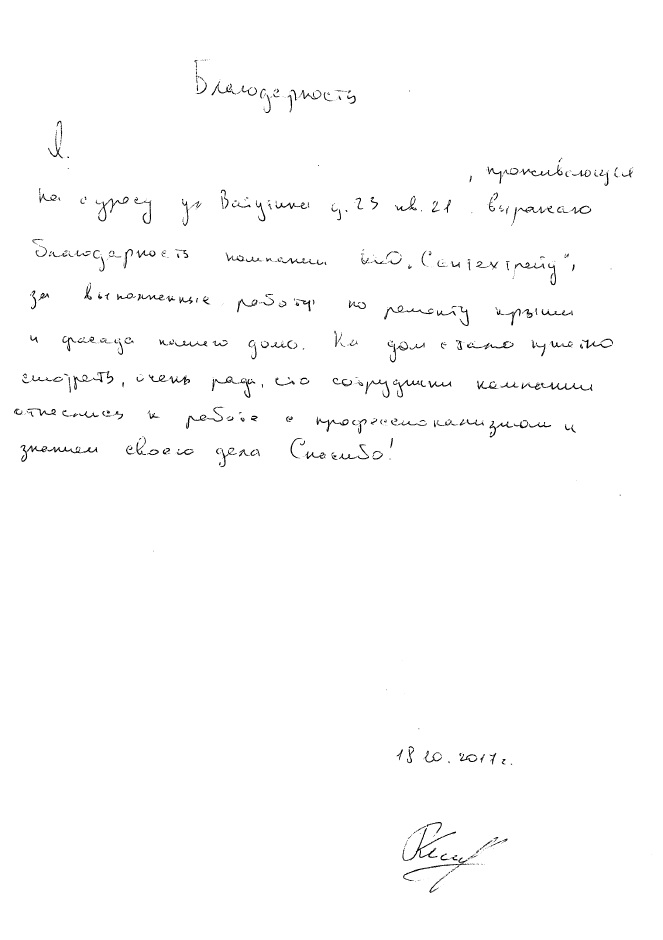 Благодарность
Я,
, проживающая
по адресу ул д. 23 кв. 21 выражаю
благодарность компании ООО „Сантехтрейд",
за выполненные работы по ремонту крыши
и фасада нашего дома. На дом стало приятно
смотреть, очень рада, что сотрудники компании
отнеслись к работе с профессионализмом и
знанием своего дела Спасибо!
2017 г.